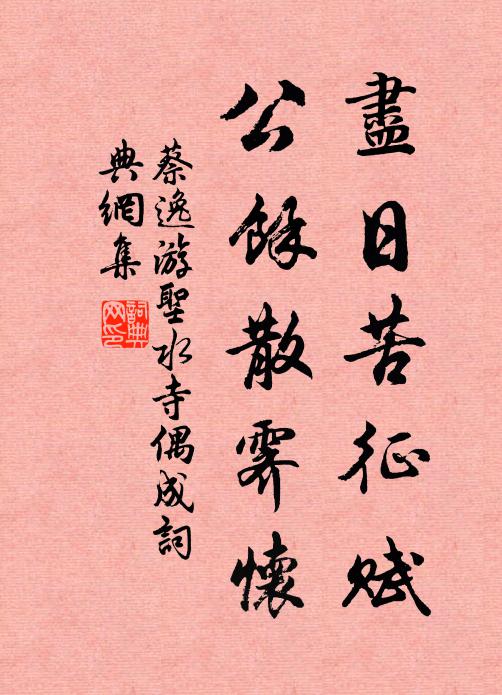 盡日苦征賦
公餘散霽懷
蔡逸游聖水寺偶成詞
典網集
詞典網印